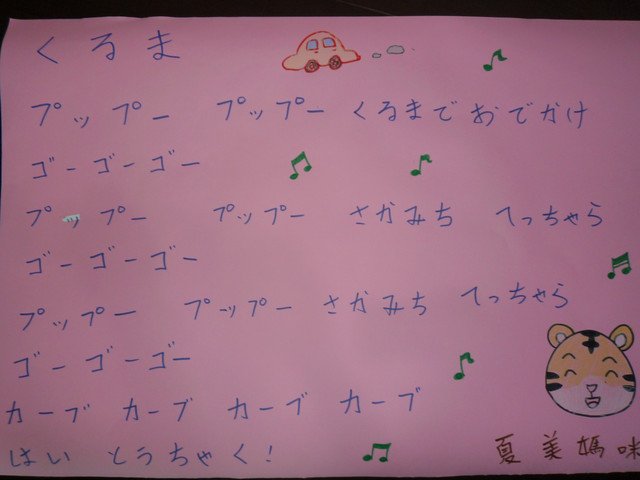 くるま
プップー プップー くるまでおでかけ
ゴーゴーゴー
プップー プップー さかみち へっちゃら
ゴーゴーゴー
プップー プップー さかみち へっちゃら
ゴーゴーゴー
カーブ カーブ カーブ カーブ
はい とうちゃく!
夏美媽咪